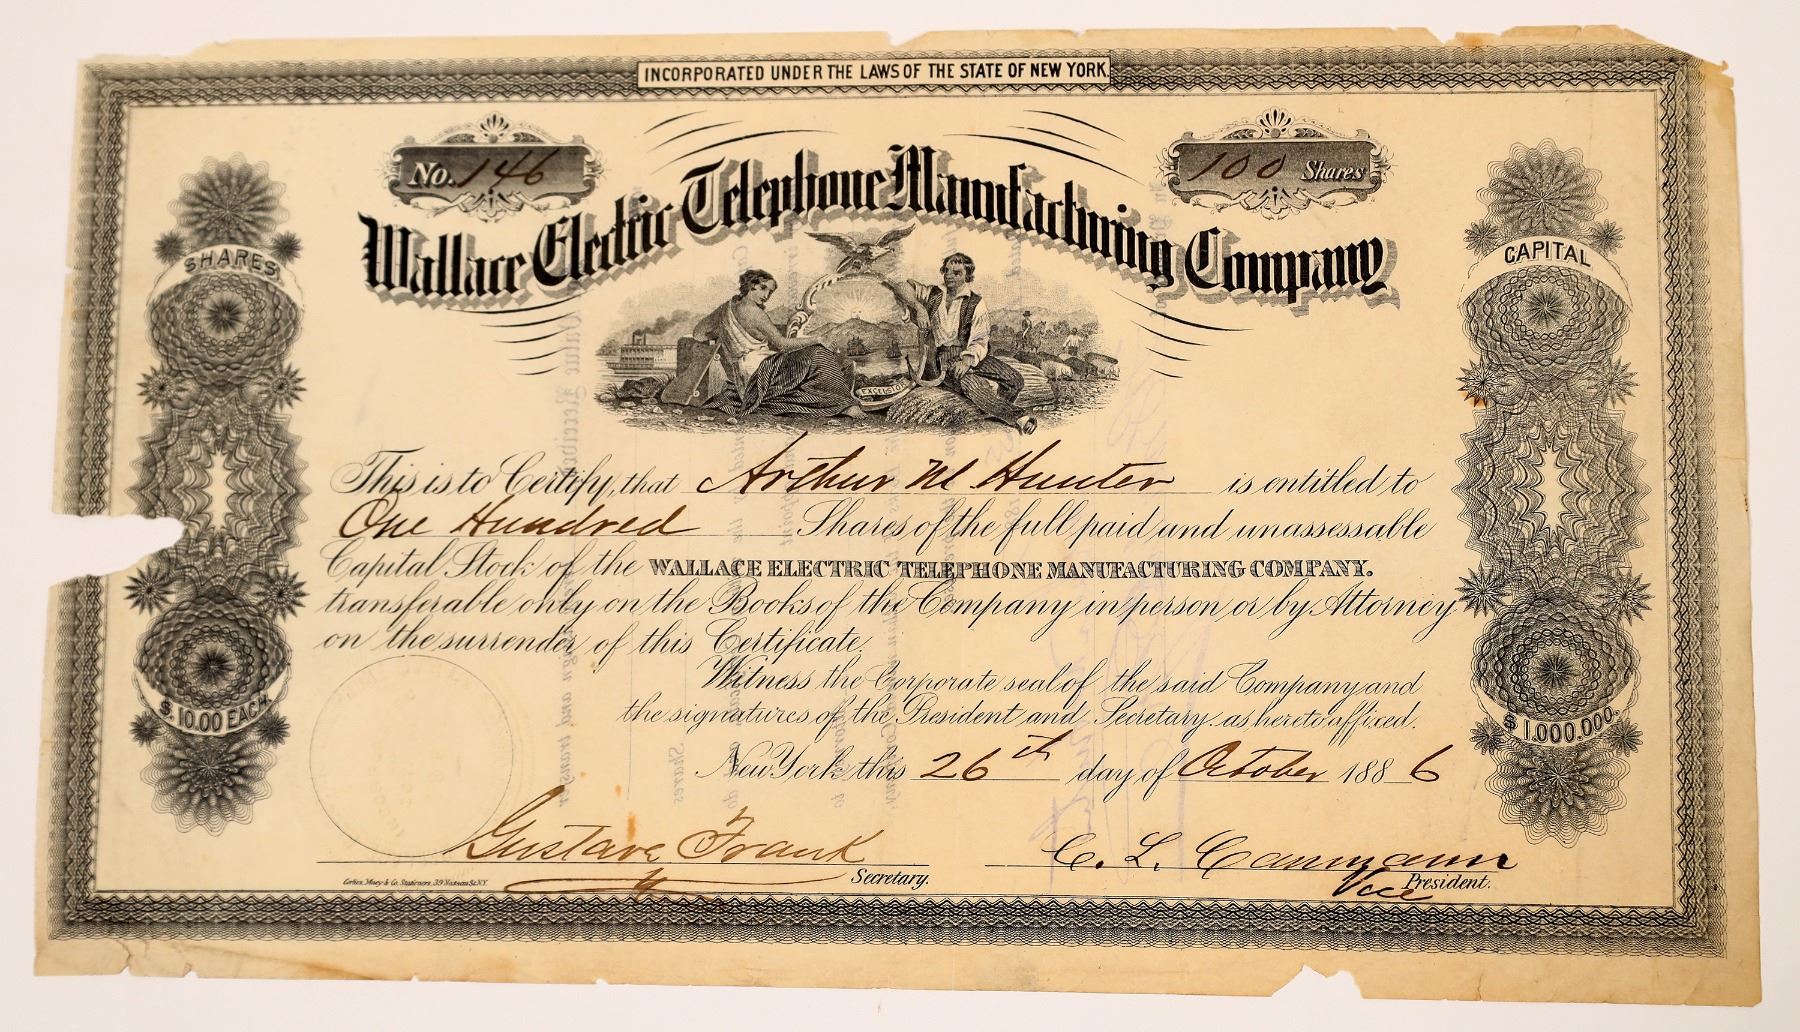 INCORPORATED UNDER THE LAWS OF THE STATE OF NEW YORK.
No. 146
100 Shares
Wallace Electric Telephone Manufacturing Company
SHARES
$.10.00 EACH.
CAPITAL
$1.000.000.
EXCELSIOR
This is to Certify, that Arthur M Hunter is entitled to
One Hundred Shares of the full paid and unassessable
Capital Stock of the WALLACE ELECTRIC TELEPHONE MANUFACTURING COMPANY.
transferable only on the Books of the Company in person or by Attorney
on the surrender of this Certificate.
Witness the Corporate seal of the said Company and
the signatures of the President and Secretary, as hereto affixed.
New York this 26th day of October 1886
Gustave Frank
Secretary.
C. L.
Vice President.
& Co. Stationers, 39 Nassau St. N.Y.